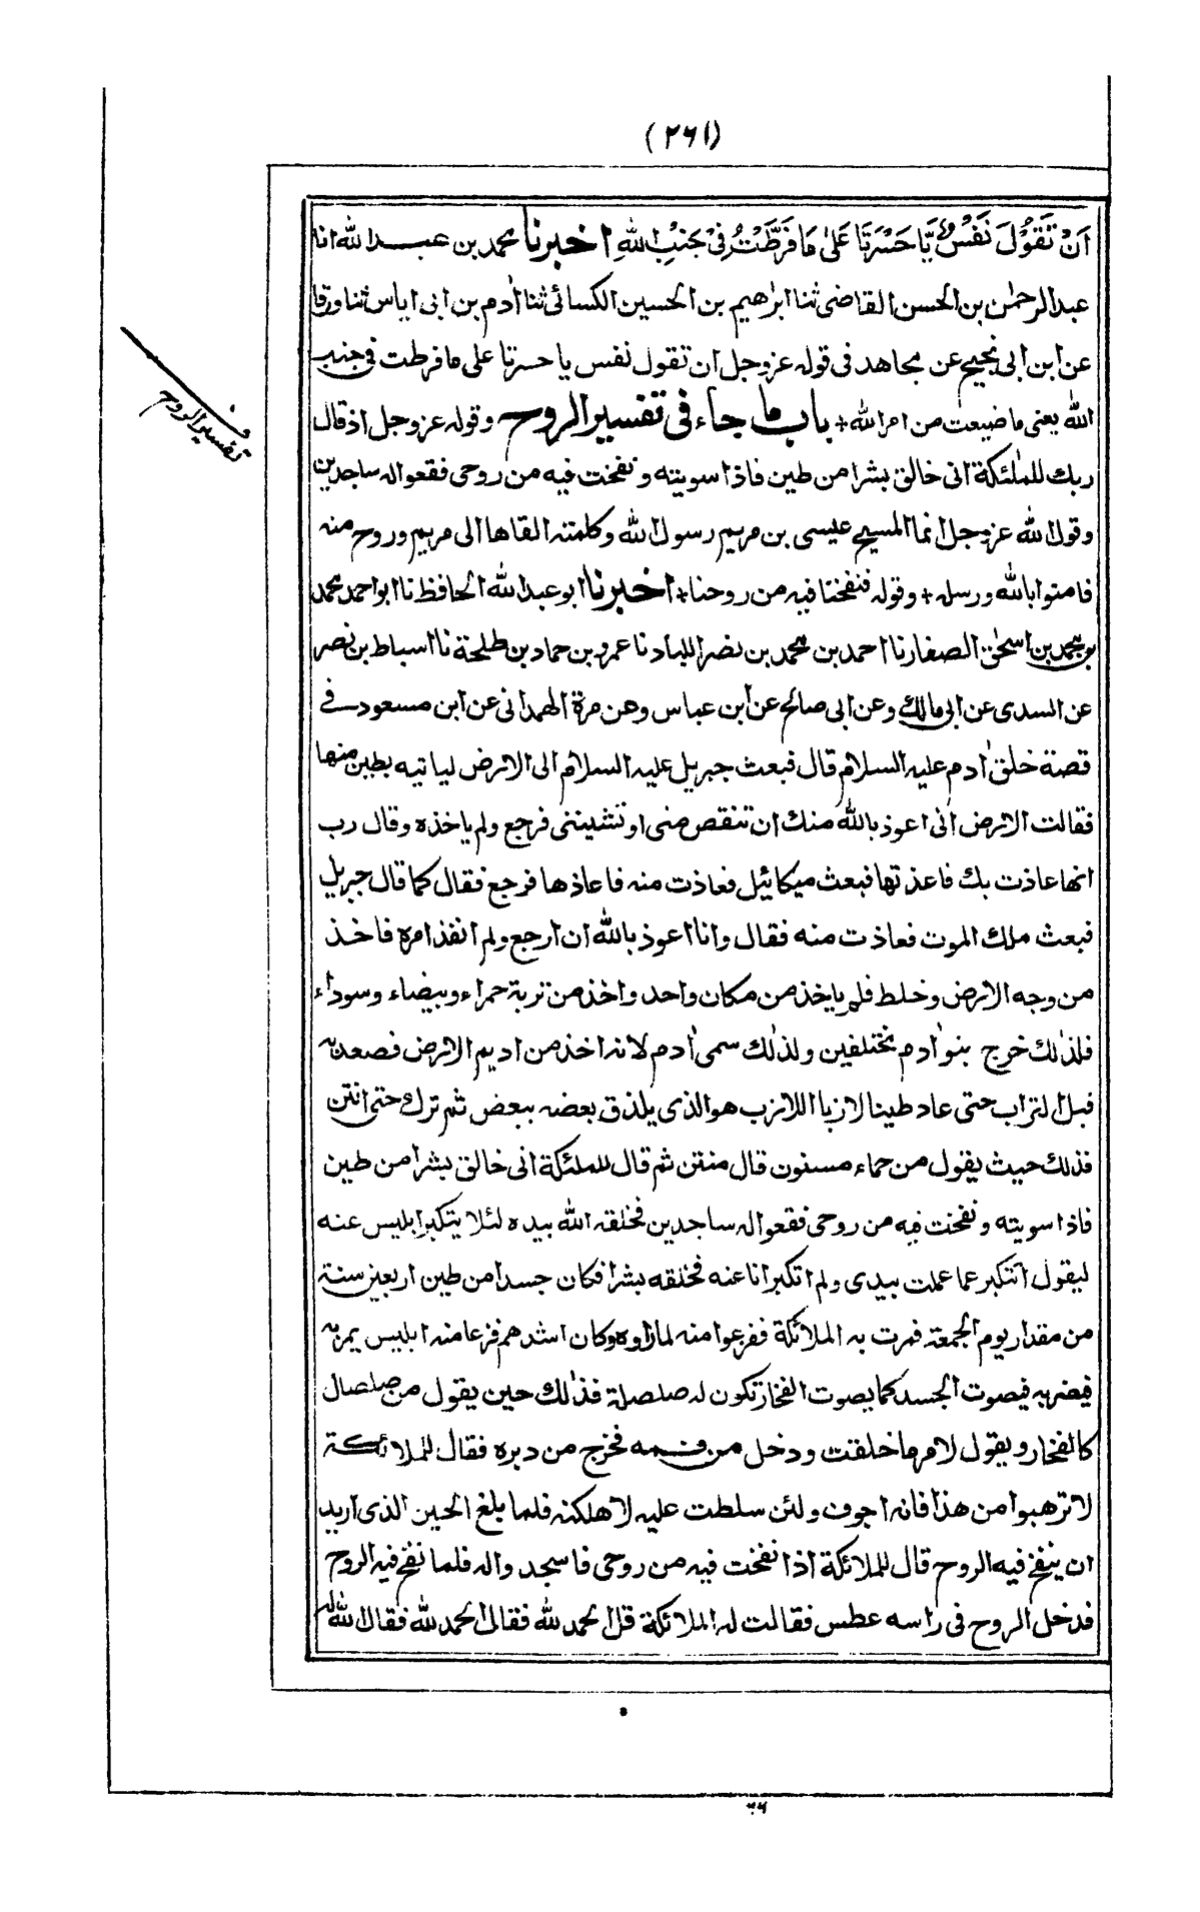 (٢٦١)
اَنْ تَقُوْلَ نَفْسٌ يَّا حَسْرَتَا عَلٰى مَا فَرَّطْتُ فِيْ جَنْبِ اللّٰهِ اخبرنا محمد بن عبد الله انا
عبد الرحمٰن بن الحسن القاضى ثنا ابراهيم بن الحسين الكسائى ثنا اٰدم بن ابى اياس ثنا ورقا
عن ابن ابى نجيح عن مجاهد فى قوله عزوجل ان تقول نفس يا حسرتا على ما فرطت فى جنب
الله يعنى ما ضيعت من امر الله + باب ما جاء فى تفسير الروح وقوله عزوجل اذ قال
تفسير الروح
ربك للملٰئكة انى خالق بشرا من طين فاذا سويته ونفخت فيه من روحى فقعوا له ساجدين
وقول الله عزوجل انما المسيح عيسى بن مريم رسول الله وكلمته القاها الى مريم وروح منه
فامنوا بالله ورسله + وقوله فنفخنا فيه من روحنا + اخبرنا ابو عبد الله الحافظ نا ابو احمد محمد
بن محمد بن اسحٰق الصفار نا احمد بن محمد بن نصر اللباد نا عمرو بن حماد بن طلحة نا اسباط بن نصر
عن السدى عن ابى مالك وعن ابى صالح عن ابن عباس وعن مرة الهمدانى عن ابن مسعود فى
قصة خلق اٰدم عليه السلام قال فبعث جبريل عليه السلام الى الارض لياتيه بطين منها
فقالت الارض انى اعوذ بالله منك ان تنقص منى او تشيننى فرجع ولم ياخذه وقال رب
انها عاذت بك فاعذتها فبعث ميكائيل فعاذت منه فاعاذها فرجع فقال كما قال جبريل
فبعث ملك الموت فعاذت منه فقال وانا اعوذ بالله ان ارجع ولم انفذ امره فاخذ
من وجه الارض وخلط فلم ياخذ من مكان واحد واخذ من تربة حمراء وبيضاء وسوداء
فلذٰلك خرج بنو اٰدم مختلفين ولذٰلك سمى اٰدم لانه اخذ من اديم الارض فصعد به
فبل التراب حتى عاد طينا لازبا اللازب هو الذى يلذق بعضه ببعض ثم ترك حتى انتن
فذلك حيث يقول من حماء مسنون قال منتن ثم قال للملٰئكة انى خالق بشرا من طين
فاذا سويته ونفخت فيه من روحى فقعوا له ساجدين فخلقه الله بيده لئلا يتكبر ابليس عنه
ليقول اتتكبر عما عملت بيدى ولم اتكبر انا عنه فخلقه بشرا فكان جسدا من طين اربعين سنة
من مقدار يوم الجمعة فمرت به الملائكة ففزعوا منه لما راوه وكان اشدهم فزعا منه ابليس يمر به
فيضربه فيصوت الجسد كما يصوت الفخار تكون له صلصلة فذٰلك حين يقول من صلصال
كالفخار ويقول لامر ما خلقت ودخل من فمه فخرج من دبره فقال للملائكة
لا ترهبوا من هذا فانه اجوف ولئن سلطت عليه لاهلكنه فلما بلغ الحين الذى اريد
ان ينفخ فيه الروح قال للملائكة اذا نفخت فيه من روحى فاسجدوا له فلما نفخ فيه الروح
فدخل الروح فى راسه عطس فقالت له الملائكة قل الحمد لله فقال الحمد لله فقال الله له
٦٦